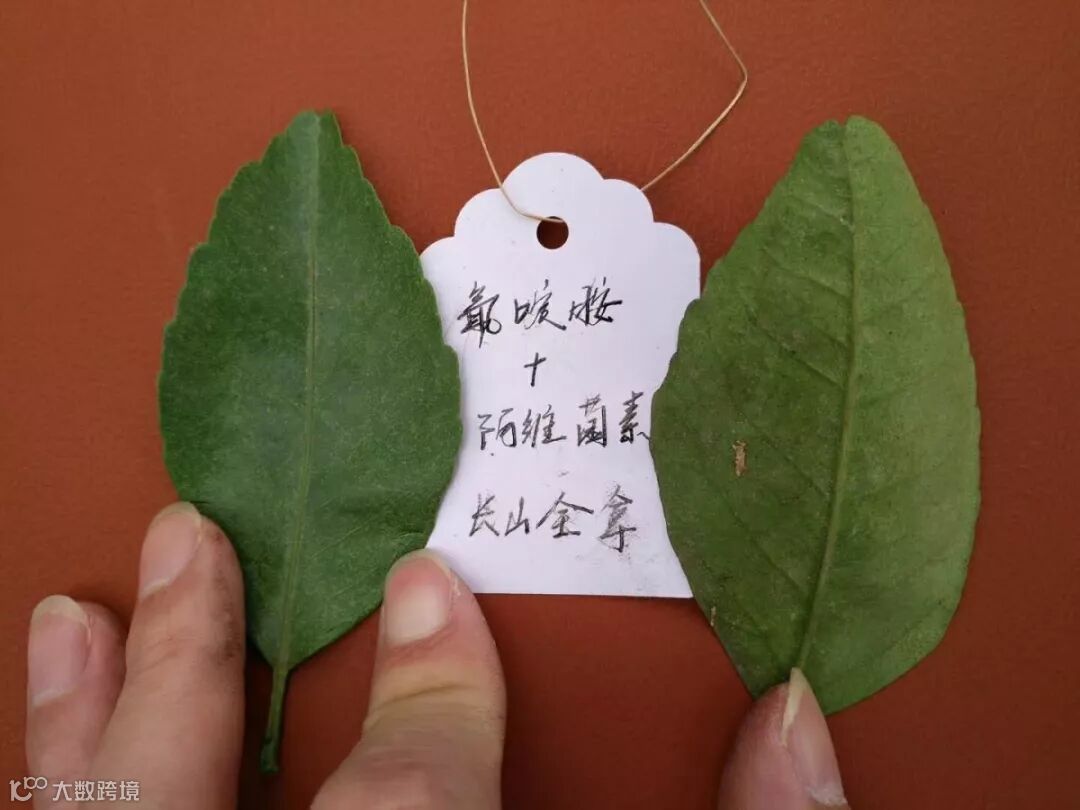 氟啶胺
+
阿维菌素
长山全拿
大数跨境